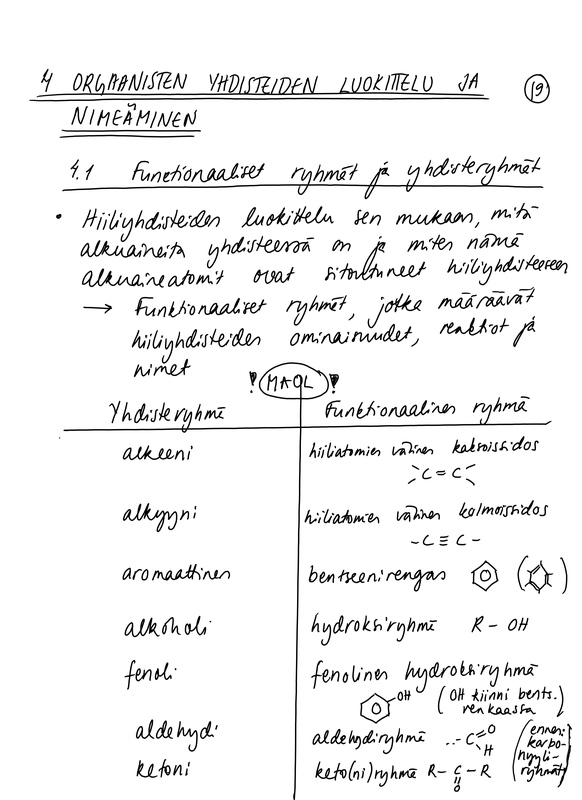 4 ORGAANISTEN YHDISTEIDEN LUOKITTELU JA
NIMEÄMINEN
19
4.1 Funktionaaliset ryhmät ja yhdisteryhmät
• Hiiliyhdisteiden luokittelu sen mukaan, mitä
alkuaineita yhdisteessä on ja miten nämä
alkuaineatomit ovat sitoutuneet hiiliyhdisteeseen
→ Funktionaaliset ryhmät, jotka määräävät
hiiliyhdisteiden ominaisuudet, reaktiot ja
nimet
! MAOL !
Yhdisteryhmä Funktionaalinen ryhmä
alkeeni hiiliatomien välinen kaksoissidos
C = C
alkyyni hiiliatomien välinen kolmoissidos
-C ≡ C-
aromaattinen bentseenirengas
alkoholi hydroksiryhmä R - OH
fenoli fenolinen hydroksiryhmä
OH (OH kiinni bents.
renkaassa)
aldehydi aldehydiryhmä ..-C=O
H
ketoni keto(ni)ryhmä R-C-R
O
(ennen:
karbo-
nyyli-
ryhmät)